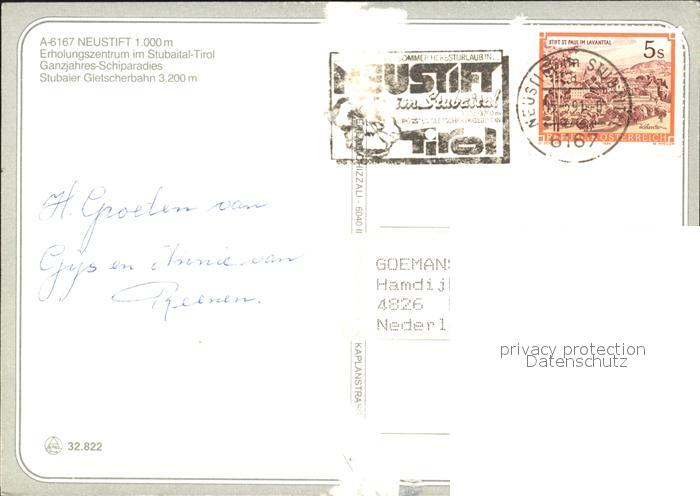 A-6167 NEUSTIFT 1.000 m
Erholungszentrum im Stubaital-Tirol
Ganzjahres-Schiparadies
Stubaier Gletscherbahn 3.200 m
SOMMER HERBSTURLAUB IN
NEUSTIFT
im Stubaital
Tirol
NEUSTIFT STUBAITAL
6167
STIFT ST. PAUL IM LAVANTTAL
5 S
REPUBLIK ÖSTERREICH
H. Groeten van
Gijs en Annie van
Reenen.
CHIZZALI - 6040 I
KAPLANSTRA
GOEMANS
Hamdij
4826
Nederl
privacy protection
Datenschutz
32.822